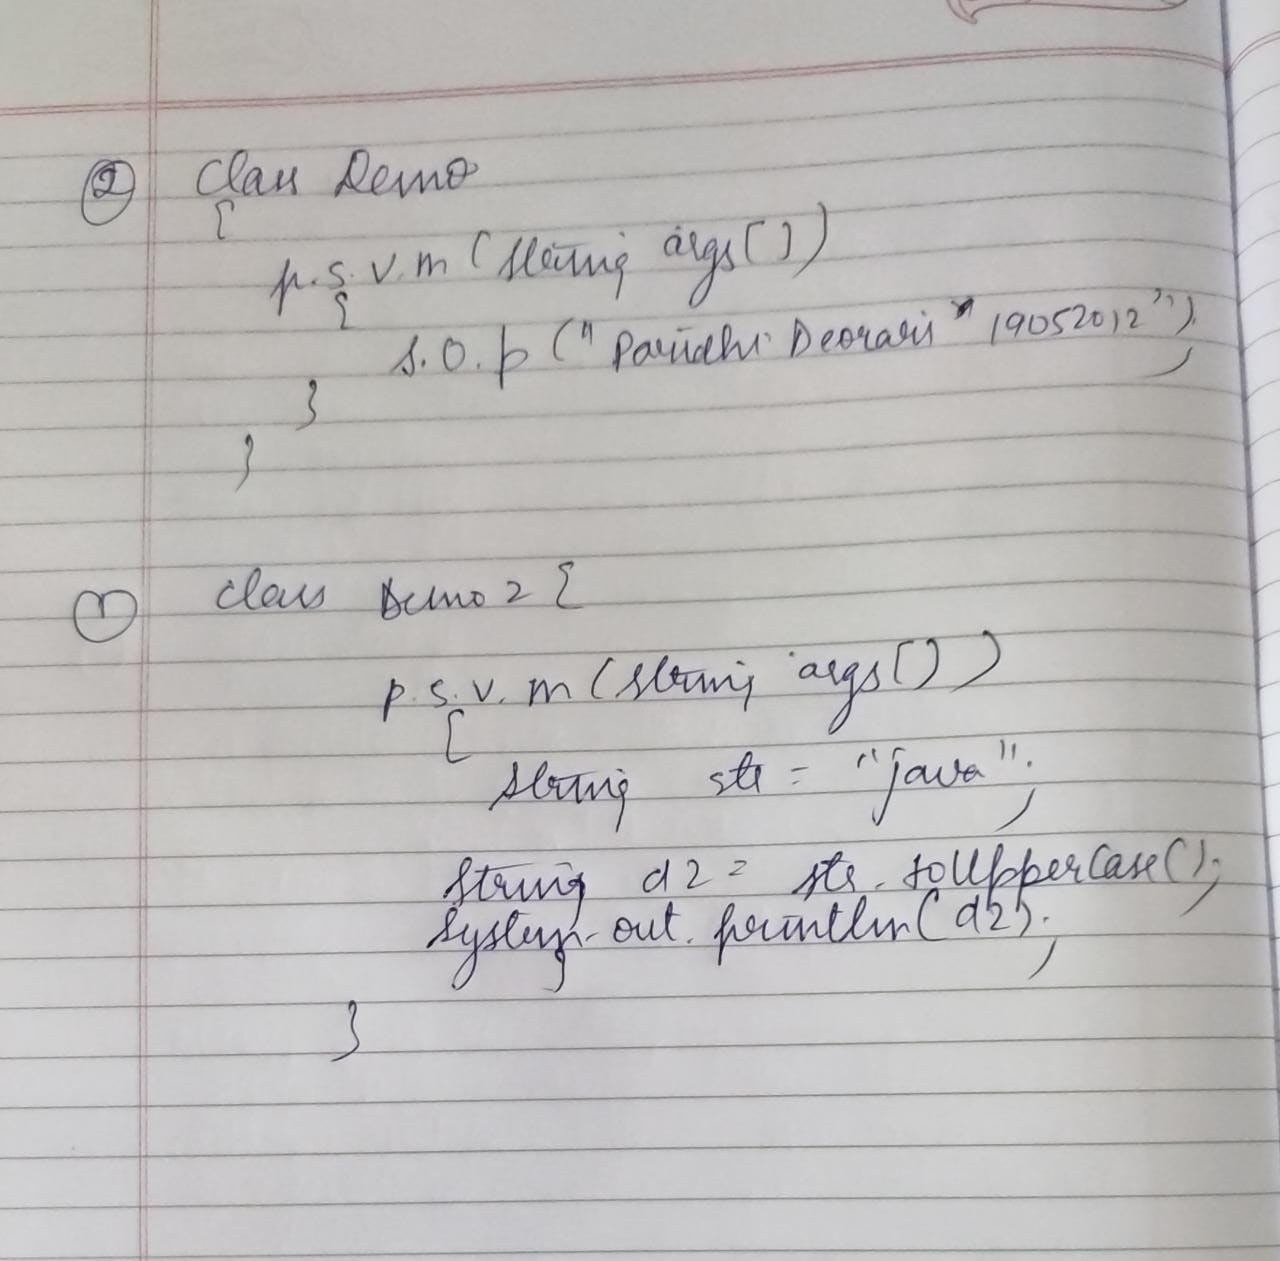 ② Class Demo
{
p.s.v.m (String args[])
{
S.O.p ("Paridhi Deorari" 19052012");
}
}
① class Demo2 {
p.s.v.m (String args[])
{
String str = "java";
String d2 = str.toUpperCase();
System.out.println(d2);
}
}